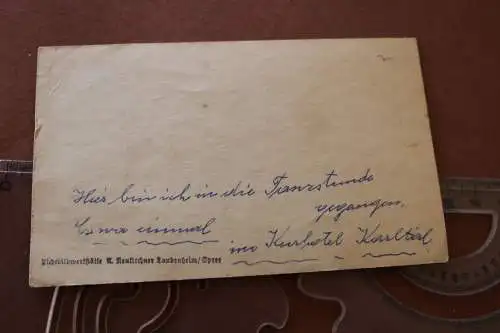 Hier bin ich in die Tanzstunde
gegangen.
Es war einmal
im Kurhotel Karltal
Lichtbildwerkstätte A. Neukirchner Taubenheim/Spree